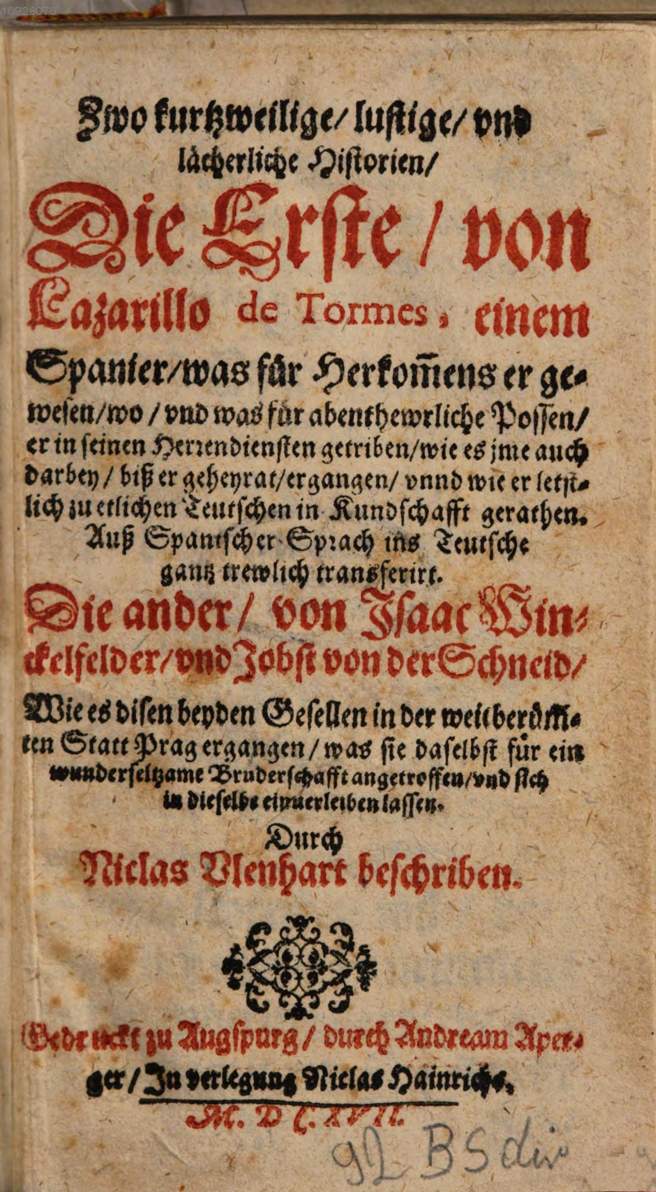 Zwo kurtzweilige/ lustige/ vnd
lächerliche Historien/
Die Erste/ von
Lazarillo de Tormes, einem
Spanier/ was für Herkom̃ens er ge-
wesen/ wo/ vnd was für abenthewrliche Possen/
er in seinen Herrendiensten getriben/ wie es jme auch
darbey/ biß er geheyrat/ ergangen/ vnnd wie er letst-
lich zu etlichen Teutschen in Kundschafft gerathen.
Auß Spanischer Sprach ins Teutsche
gantz trewlich transferirt.
Die ander/ von Isaac Win-
ckelfelder/ vnd Jobst von der Schneid/
Wie es disen beyden Gesellen in der weitberüm̃-
ten Statt Prag ergangen/ was sie daselbst für ein
wunderseltzame Bruderschafft angetroffen/ vnd sich
in dieselbe einuerleiben lassen.
Durch
Niclas Vlenhart beschriben.
Gedruckt zu Augspurg/ durch Andream Aper-
ger/ In verlegung Niclas Hainrichs.
M. D C. XVII.
92 BS div